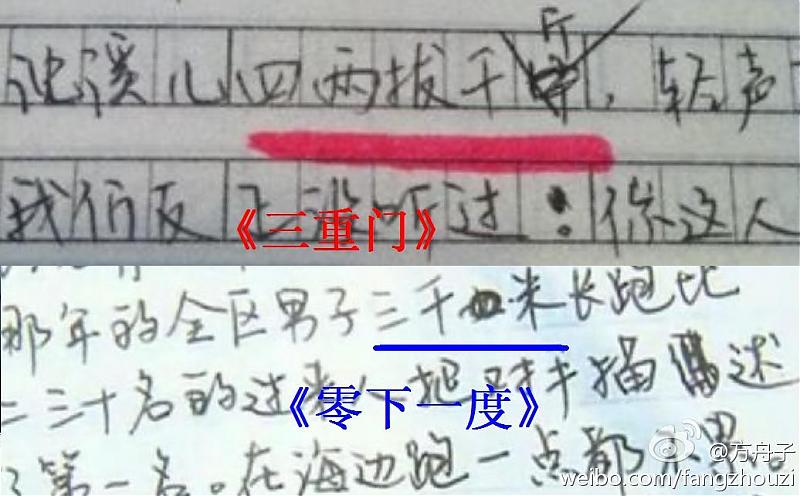 沈溪儿四两拔千斤，轻声
我们反正没听过：你这人
《三重门》
那年的全区男子三千米长跑比
二三十名的过来人 描述
《零下一度》
了第一名。在海边跑一点都不累。
@方舟子
weibo.com/fangzhouzi